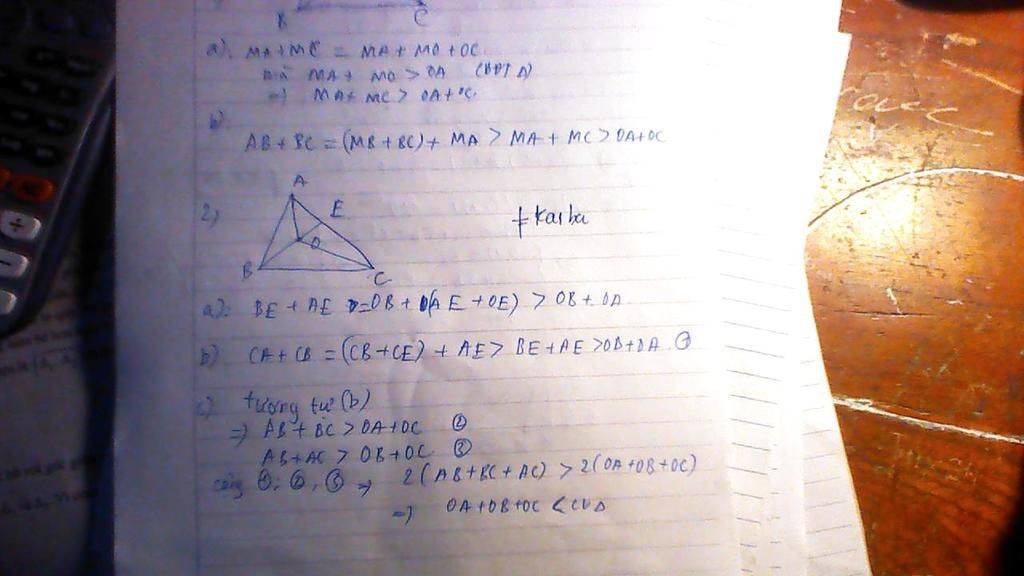 B C
a). MA + MC = MA + MO + OC.
mà MA + MO > OA (BĐT Δ)
=) MA + MC > OA + OC.
b)
AB + BC = (MB + BC) + MA > MA + MC > OA + OC
A
2) E
O
B C
a). BE + AE = OB + (AE + OE) > OB + OA
b) CA + CB = (CB + CE) + AE > BE + AE > OB + OA ①
c) tương tự (b)
=) AB + BC > OA + OC ②
AB + AC > OB + OC ③
cộng ①; ②, ③ => 2(AB + BC + AC) > 2(OA + OB + OC)
=) OA + OB + OC < CV Δ